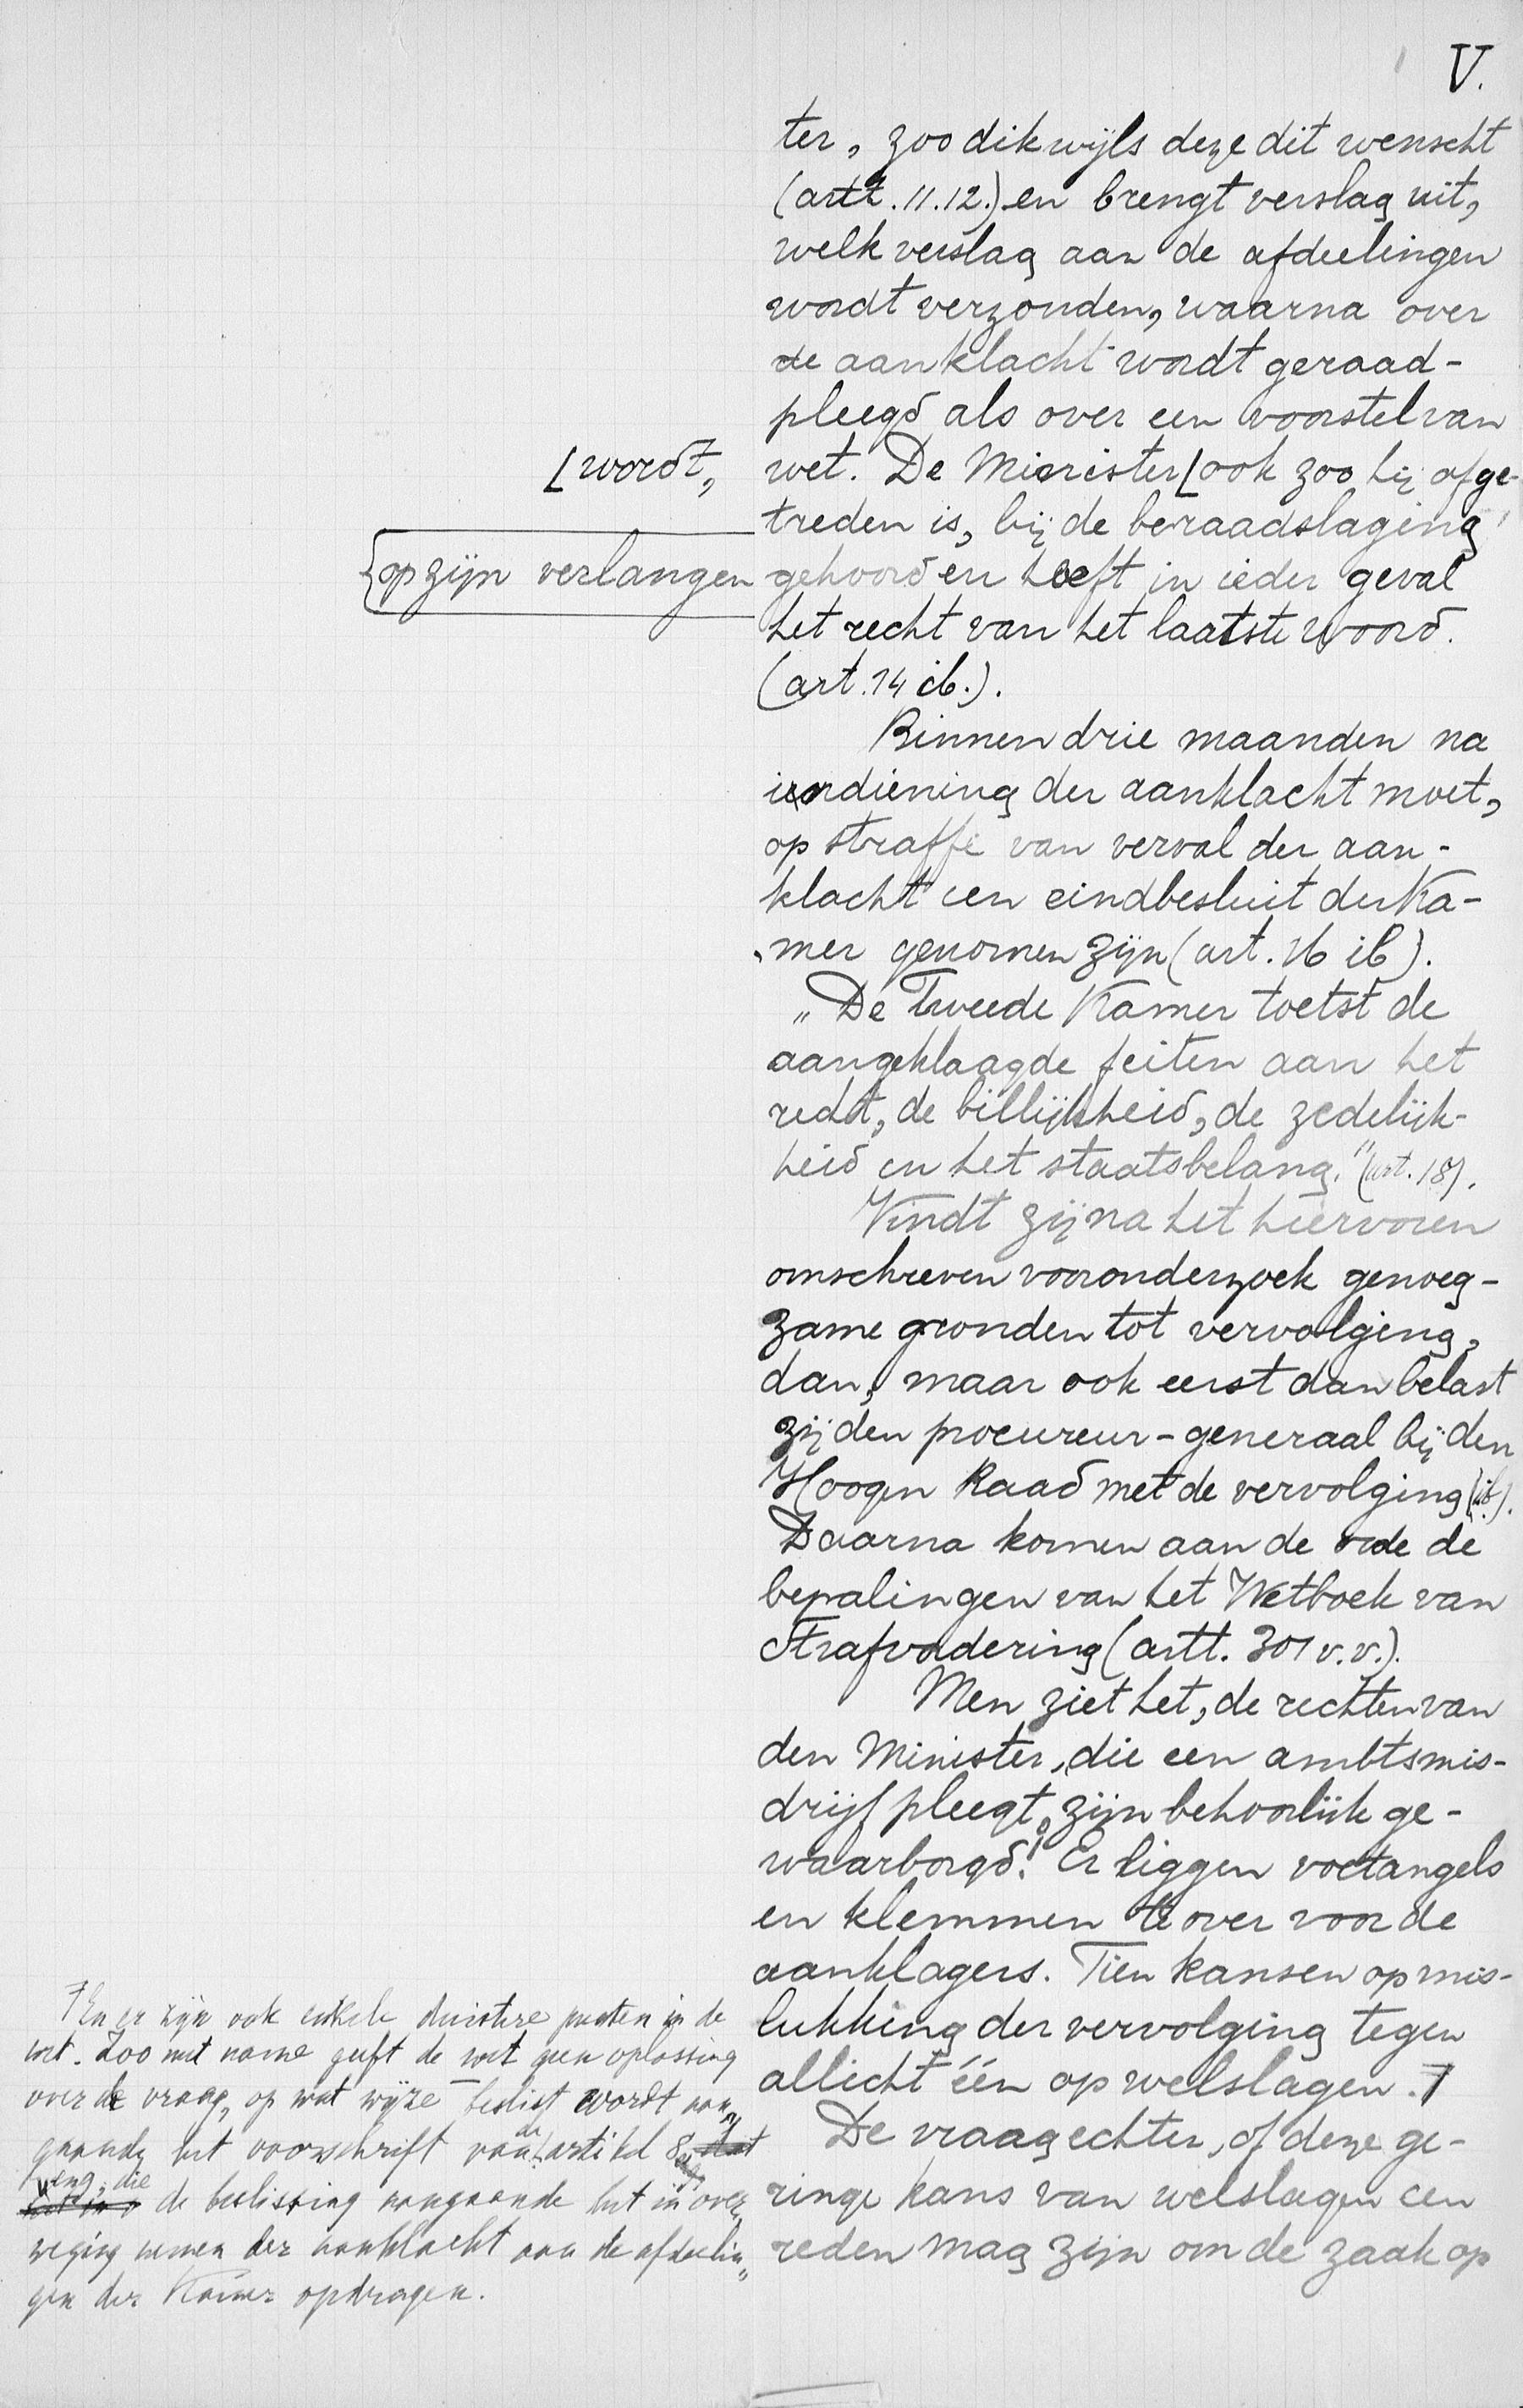 V.
ter, zoo dikwijls deze dit wenscht
(artt. 11.12.) en brengt verslag uit,
welk verslag aan de afdeelingen
wordt verzonden, waarna over
de aanklacht wordt geraad-
pleegd als over een voorstel van
wet. De Minister ⌊ook zoo hij afge-
⌊wordt,
treden is, bij de beraadslaging
{op zijn verlangen
gehoord en heeft in ieder geval
het recht van het laatste woord.
(art. 14 ib.).
Binnen drie maanden na
indiening der aanklacht moet,
op straffe van verval der aan-
klacht een eindbesluit der Ka-
mer genomen zijn (art. 16 ib).
„De Tweede Kamer toetst de
aangeklaagde feiten aan het
recht, de billijkheid, de zedelijk-
heid en het staatsbelang." (art. 18).
Vindt zij na het hiervoren
omschreven vooronderzoek genoeg-
zame gronden tot vervolging,
dan, maar ook eerst dan belast
zij den procureur-generaal bij den
Hoogen Raad met de vervolging (ib).
Daarna komen aan de orde de
bepalingen van het Wetboek van
Strafvordering (artt. 301 v.v.).
Men ziet het, de rechten van
den Minister, die een ambtsmis-
drijf pleegt, zijn behoorlijk ge-
waarborgd! Er liggen voetangels
en klemmen te over voor de
aanklagers. Tien kansen op mis-
lukking der vervolging tegen
allicht één op welslagen. 7
De vraag echter, of deze ge-
ringe kans van welslagen een
reden mag zijn om de zaak op
7 En er zijn ook enkele duistere punten in de
wet. Zoo met name geeft de wet geen oplossing
over de vraag, op wat wijze beslist wordt aan„
gaande het voorschrift van de artikel 8
eng, die de beslissing aangaande het in over„
weging nemen der aanklacht aan de afdeelin„
gen der Kamer opdragen.